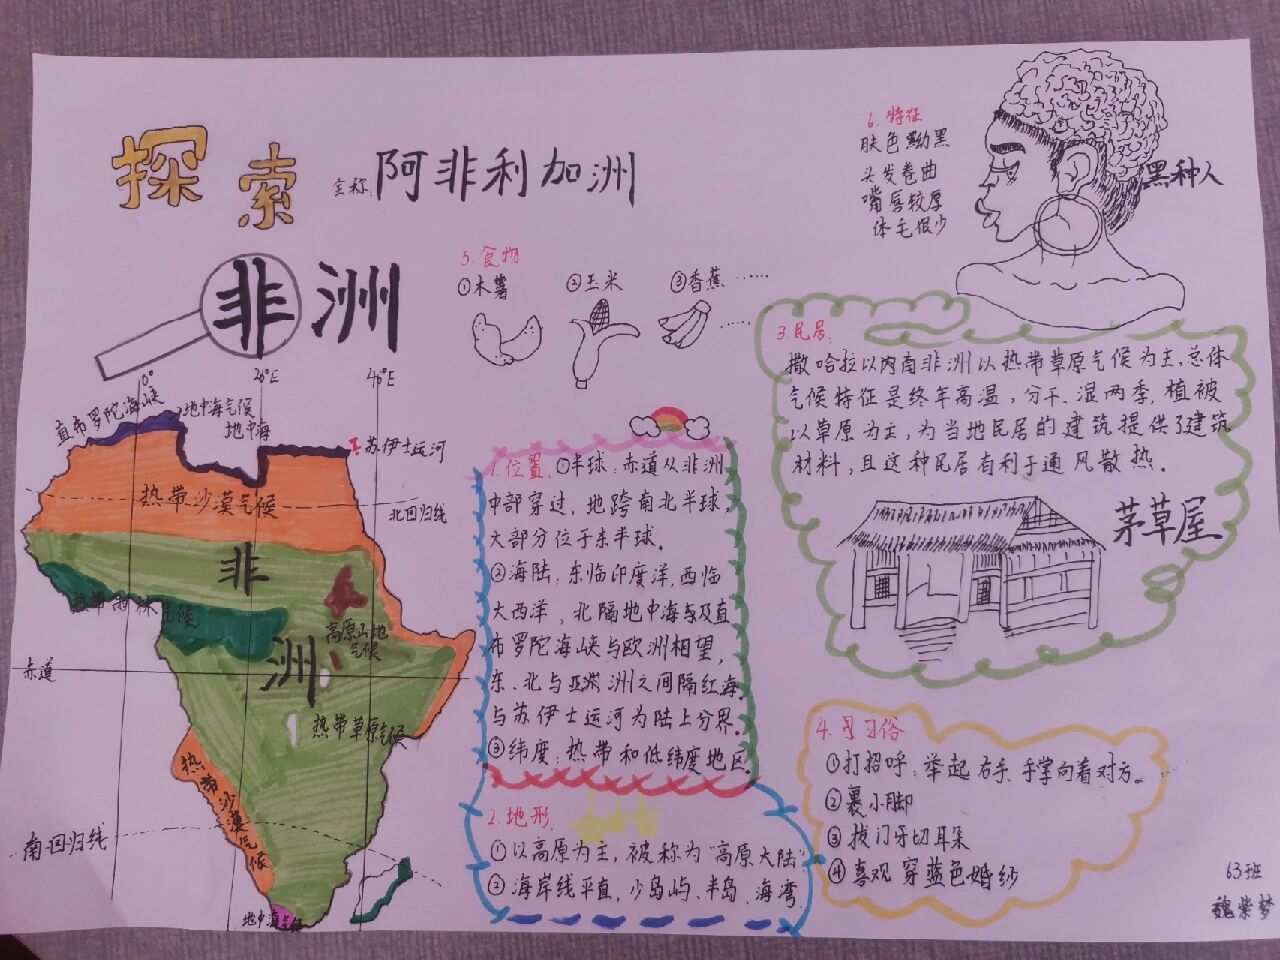 探索
全称:阿非利加洲
非洲
0°
20°E
40°E
直布罗陀海峡
地中海气候
地中海
苏伊士运河
热带沙漠气候
北回归线
非
热带雨林气候
高原山地
气候
洲
赤道
热带草原气候
热带沙漠气候
南回归线
地中海气候
5.食物
①木薯
②玉米
③香蕉……
……
6.特征
肤色黝黑
头发卷曲
嘴唇较厚
体毛很少
黑种人
1.位置.①半球:赤道从非洲
中部穿过,地跨南北半球,
大部分位于东半球.
②海陆:东临印度洋,西临
大西洋,北隔地中海与及直
布罗陀海峡与欧洲相望,
东、北与亚洲之间隔红海,
与苏伊士运河为陆上分界.
③纬度:热带和低纬度地区.
2.地形.
①以高原为主,被称为“高原大陆”
②海岸线平直,少岛屿、半岛、海湾.
3.民居.
撒哈拉以内南非洲以热带草原气候为主,总体
气候特征是终年高温,分干、湿两季,植被
以草原为主,为当地民居的建筑提供了建筑
材料,且这种民居有利于通风散热.
茅草屋
4.习俗
①打招呼:举起右手、手掌向着对方。
②裹小脚
③拔门牙切耳朵
④喜观穿蓝色婚纱
63班
魏紫梦